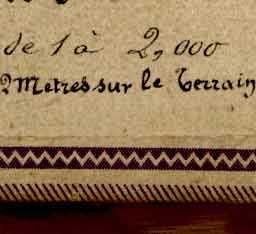 de 1 à 2,000
2 Metres sur le Terrain